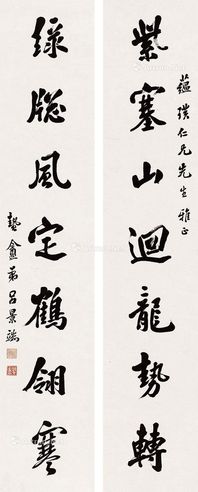 蕴璞仁兄先生雅正
紫塞山迴龍勢轉
綠牕風定鶴翎寒
蟄盦弟吕景端